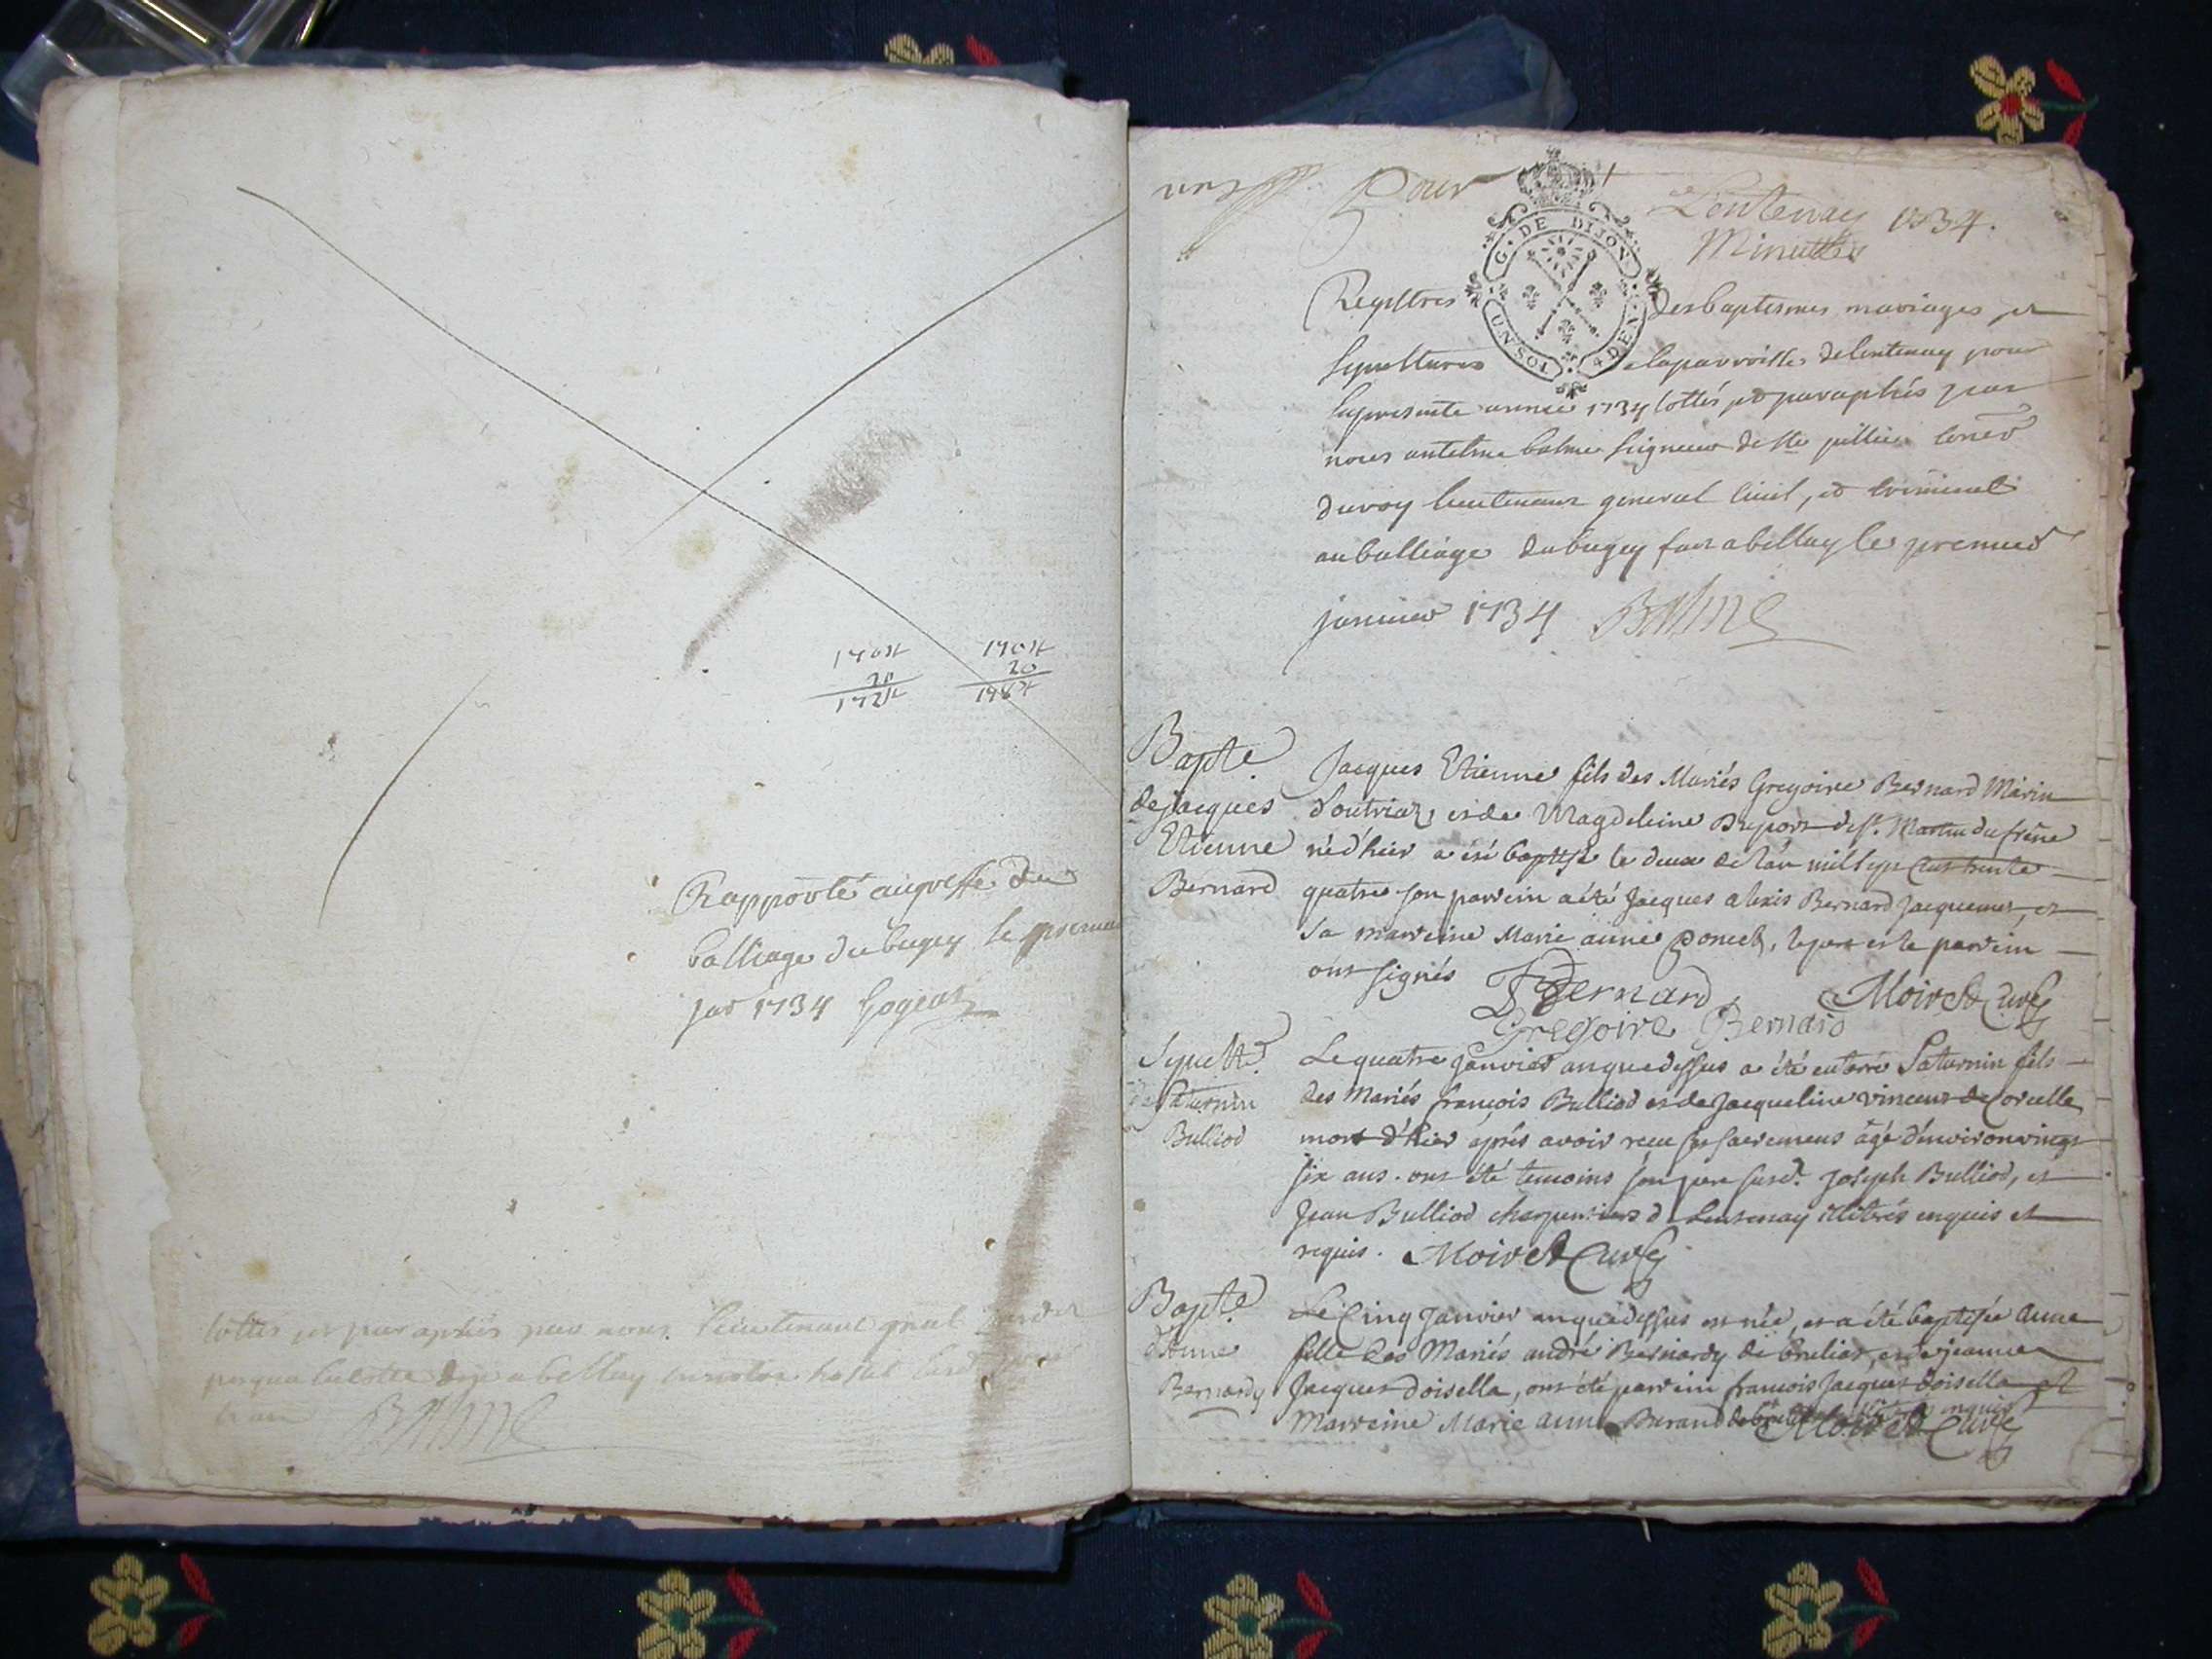 170#
20
172#
170#
20
178#
Rapporté au greffe du
balliage du bugey le premier
jer 1734 Gogeat
cottés et paraphés par nous lieutenant gnal
Balme
Pour
G. DE DIJON
UN SOL
4 DEN.
Lentenay 1734.
Minuttes
Registres des baptesmes mariages et
sepultures de la parroisse de lentenay pour
la presente année 1734 cottés et paraphés par
nous antelme balme seigneur de Ste
du roy lieutenant general civil, et criminel
au balliage du bugey fait a bellay le premier
janvier 1734 Balme
Bapte.
de jacques
Etienne
Bernard
Jacques Etienne fils des Mariés Gregoire Bernard Marin
d'outriaz, et de Magdeleine Dupont de St. Martin du frêne
né d'hier a été baptisé le deux de l'an mil sept cent trente
quatre son parrein a été Jacques alexis Bernard Jacquemet, et
Sa marreine Marie anne Poncet, le pere et le parrein
ont signés J Bernard Moiret Curé
Gregoire Bernard
Sepult.
de Saturnin
Bulliod
Le quatre janvier an que dessus a été enterré Saturnin fils
des Mariés françois Bulliod et de Jacqueline vincent de Corcelle
mort d'hier après avoir receu ses sacremens âgé d'environ vingt
six ans. ont été temoins son pere susd. Joseph Bulliod, et
Jean Bulliod charpentiers d Lentenay illiterés enquis et
requis. Moiret Curé
Bapte.
d'Anne
Bernardy
Le Cinq Janvier an que dessus est née, et a été baptisée Anne
fille des Mariés andré Bernardy de brulias, et de jeanne
Jacques doisella, ont été parrein françois Jacques doisella et
Marreine Marie anne Burand enquis
Moiret Curé